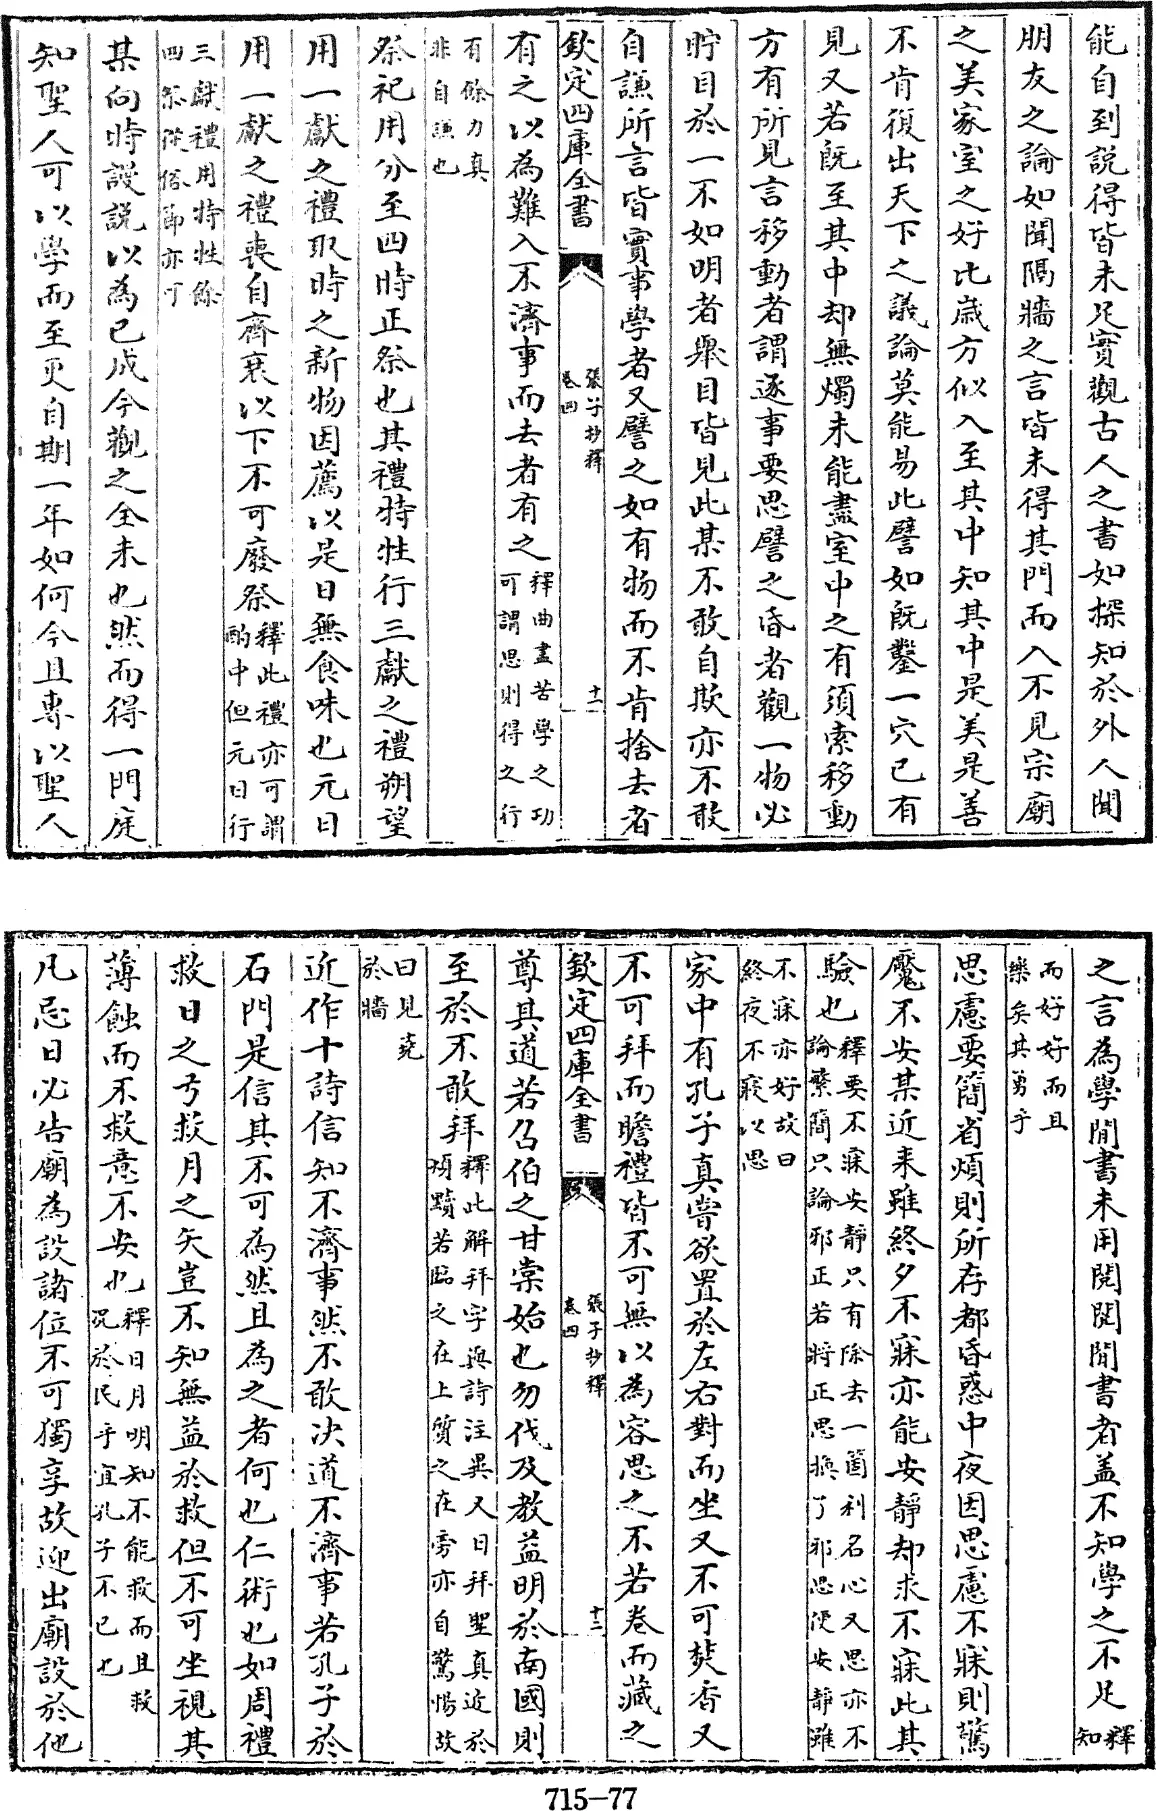 能自到説得皆未足實觀古人之書如探知於外人聞
朋友之論如聞隔牆之言皆未得其門而入不見宗廟
之美家室之好比歳方似入至其中知其中是美是善
不肯復出天下之議論莫能易此譬如既鑿一穴已有
見又若既至其中却無燭未能盡室中之有須索移動
方有所見言移動者謂逐事要思譬之昏者觀一物必
貯目於一不如明者舉目皆見此某不敢自欺亦不敢
自謙所言皆實事學者又譬之如有物而不肯捨去者
欽定四庫全書
張子抄釋
卷四
十一
有之以為難入不濟事而去者有之釋曲盡苦學之功
可謂思則得之行
有餘力真
非自謙也
祭祀用分至四時正祭也其禮特牲行三獻之禮朔望
用一獻之禮取時之新物因薦以是日無食味也元日
用一獻之禮喪自齊衰以下不可廢祭釋此禮亦可謂
酌中但元日行
三獻禮用特牲餘
四祭從俗節亦可
某向時謾説以為已成今觀之全未也然而得一門庭
知聖人可以學而至更自期一年如何今且專以聖人
之言為學閒書未用閲閲閒書者盖不知學之不足釋
知
而好好而且
樂矣其勇乎
思慮要簡省煩則所存都昏惑中夜因思慮不寐則驚
魘不安某近来雖終夕不寐亦能安靜却求不寐此其
驗也釋要不寐安靜只有除去一箇利名心又思亦不
論繁簡只論邪正若將正思換了邪思便安靜雖
不寐亦好故曰
終夜不寢以思
家中有孔子真嘗欲置於左右對而坐又不可焚香又
不可拜而瞻禮皆不可無以為容思之不若卷而藏之
欽定四庫全書
張子抄釋
卷四
十二
尊其道若召伯之甘棠始也勿伐及教益明於南國則
至於不敢拜釋此解拜字與詩注異又曰拜聖真近於
煩黷若臨之在上質之在旁亦自驚惕故
曰見堯
於牆
近作十詩信知不濟事然不敢决道不濟事若孔子於
石門是信其不可為然且為之者何也仁術也如周禮
救日之弓救月之矢豈不知無益於救但不可坐視其
薄蝕而不救意不安也釋日月明知不能救而且救
况於民乎宜孔子不已也
凡忌日必告廟為設諸位不可獨享故迎出廟設於他
715-77